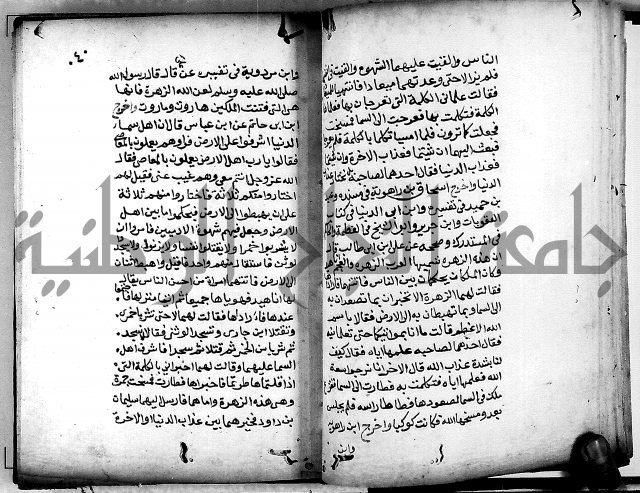 الناس والقيت عليهما الشهوة والقيت في
فلم يزالا حتى وعدتهما ميعادا فاتتهما للميعاد
فقالت علماني الكلمة التي تعرجان بها فعلماها
الكلمة فتكلمت بها فعرجت الى السما فمسخت
فجعلت كما ترون فلما امسيا تكلما بالكلمة فلم يعرجا
فبعث اليهما ان شيتما فعذاب الاخرة وان شيتما
فعذاب الدنيا فقال احدهما لصاحبه
الدنيا واخرج اسحاق بن راهوية في مسنده وعبد
بن حميد في تفسيره وابن ابي الدنيا في كتاب
العقوبات وابن جرير وابو الشيخ في العظمة والحاكم
في المستدرك وصححه عن علي بن ابي طالب قال
ان هذه الزهرة تسميها العرب الزهرة والعجم
وكان الملكان يحكمان بين الناس فاتتهما
فقالت لهما الزهرة الا تخبراني بما تصعدان به
الى السما وبما تهبطان به الى الارض فقالا باسم
الله الاعظم فقالت ما انا بمواتيتكما حتى تعلمانيه
فقال احدهما لصاحبه علمها اياه فقال كيف
لنا بشدة عذاب الله قال الاخر انا نرجو سعة
الله فعلمها اياه فتكلمت به فطارت الى السما ففزع
ملك في السما لصعودها فطاطا راسه فلم يجلس
بعد ومسخها الله فكانت كوكبا واخرج ابن راهوية
وابن
٤٠
وابن مردوية في تفسيره عن قال قال رسول الله
صلى الله عليه وسلم لعن الله الزهرة فانها
هي التي فتنت الملكين هاروت وماروت واخرج
ابن ابي حاتم عن ابن عباس قال ان اهل سما
الدنيا اشرفوا على الارض فراوهم يعملون بالمعاصي
فقالوا يا رب اهل الارض يعملون بالمعاصي فقال
الله عز وجل انتم معي وهم غيب عني فقيل لهم
اختاروا منكم ثلاثة فاختاروا منهم ثلاثة
على ان يهبطوا الى الارض فيحكموا بين اهل
الارض وجعل فيهم شهوة الادميين فامروا ان
لا يشربوا خمرا ولا يقتلوا نفسا ولا يزنوا ولا يسجدوا
لوثن فاستقال منهم واحد فاقيل واهبط اثنان
الى الارض فاتتهما امراة من احسن الناس يقال
لها اناهيد فهوياها جميعا ثم اتيا منزلها
عندها فاراداها فقالت لهما لا حتى تشربا خمري
وتقتلا ابن جاري وتسجدا لوثني فقالا لا نسجد
ثم شربا من الخمر ثم قتلا ثم سجدا فاشرف اهل
السما عليهما وقالت لهما اخبراني بالكلمة التي
اذا قلتماها طرتما فاخبراها فطارت فمسخت جمرة
وهي هذه الزهرة واما هما فارسل اليهما سليمان
بن داود فخيرهما بين عذاب الدنيا والاخرة
جامعة النجاح الوطنية